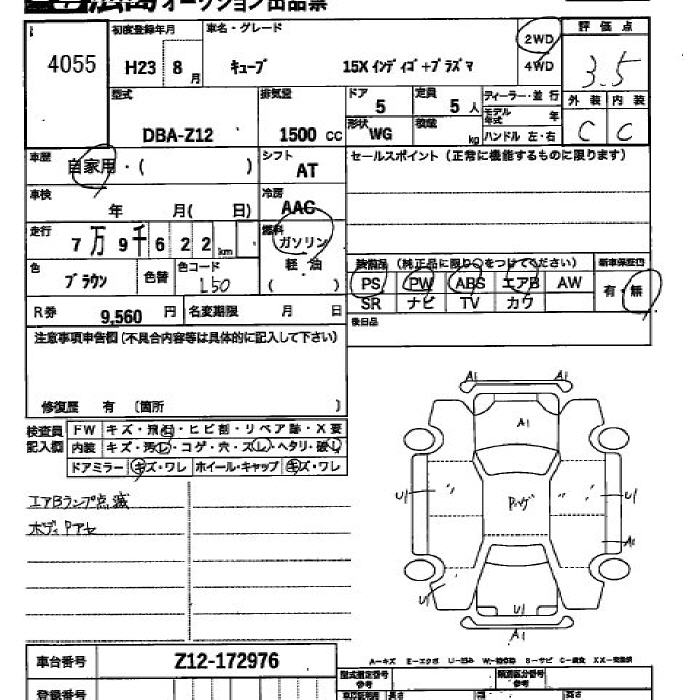 オークション出品票
4055
初度登録年月
H23 8月
車名・グレード
キューブ 15X インディゴ+プラズマ
2WD
4WD
評価点
3.5
型式
DBA-Z12
排気量
1500 cc
ドア
5
定員
5人
ディーラー・並行
モデル年式 年
ハンドル 左・右
形状
WG
積載
kg
外装 内装
C C
車歴
自家用・( )
シフト
AT
セールスポイント (正常に機能するものに限ります)
車検
年 月( 日)
冷房
AAC
走行
7万9千622km
燃料
ガソリン
軽・油
( )
色
ブラウン
色替
色コード
L50
装備品 (純正品に限り○をつけてください)
新車保証書
PS PW ABS エアB AW
有・無
SR ナビ TV カワ
R券 9,560 円
名変期限 月 日
後日品
注意事項申告欄(不具合内容等は具体的に記入して下さい)
修復歴 有 〔箇所 〕
検査員記入欄
FW キズ・飛石・ヒビ割・リペア跡・X要
内装 キズ・汚レ・コゲ・穴・スレ・ヘタリ・破レ
ドアミラー キズ・ワレ ホイール・キャップ キズ・ワレ
エアBランプ点滅
ボディPアセ
A1
A1
A1
U1
U1
A1
U1
U1
A1
車台番号 Z12-172976
A－キズ E－エクボ U－凹み W－補修跡 S－サビ C－腐食 XX－交換済
型式指定番号
参考
類別区分番号
参考
登録番号
長さ